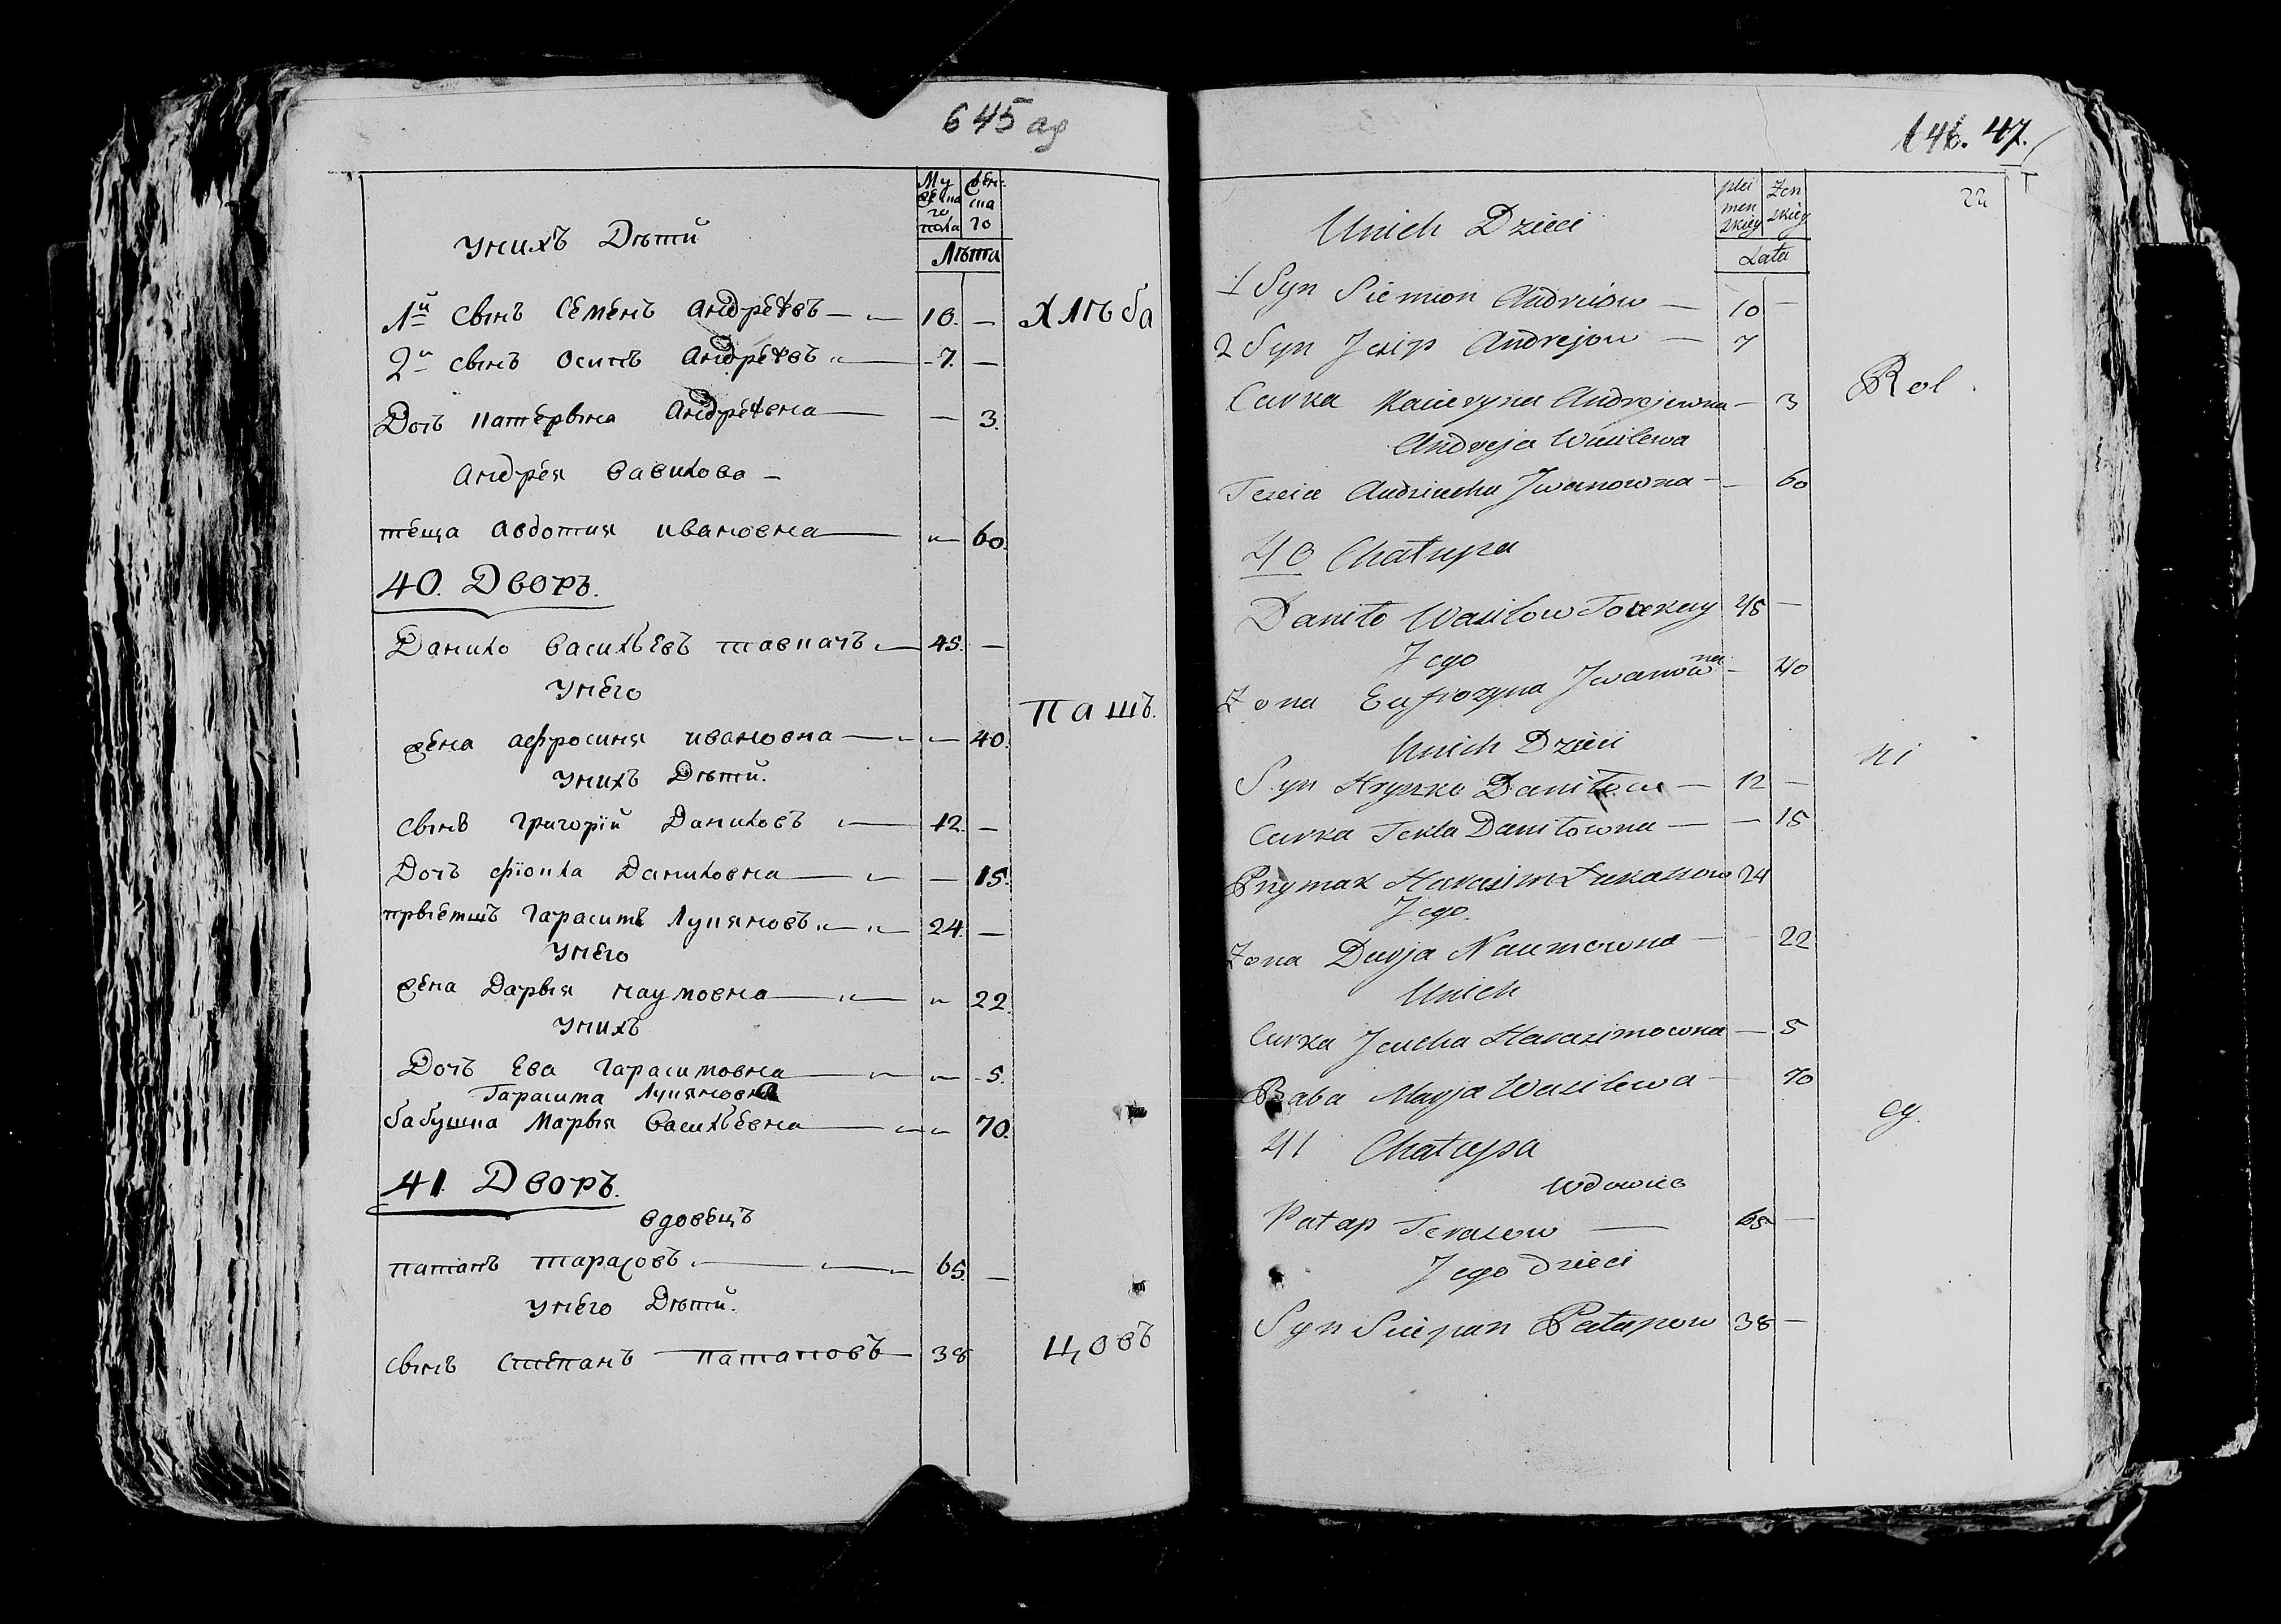 645 ар
Му жеска го пола
Жен ска го
Лѣта
Унихъ Дѣти
1й Сынъ Семенъ Андреѣвъ 10. —
Хлѣба
2й Сынъ Осипъ Андреѣвъ 7. —
Дочъ Катерына Андреѣвна — 3.
Андрея Савилова —
теща Авдотия Ивановна 60.
40. Дворъ.
Данило Васильевъ товкачъ 45. —
Унего
Пашъ.
жена Афросиня Ивановна — 40.
Унихъ Дѣти.
Сынъ Григорій Даниловъ 12. —
Дочъ Фіокла Даниловна — 15.
прыемшъ Гарасимъ Лукяновъ 24. —
Унего
жена Дарыя Наумовна 22.
Унихъ
Дочъ Ева Гарасимовна 5.
Гарасима Лукянова
бабушка Марыя Васильевна 70.
41. Дворъ.
вдовецъ
Патапъ Тарасовъ 65. —
Унего Дѣти.
Сынъ Степанъ Патаповъ 38
цовъ
146. 47.
płci men zkiey
Zen zkiey
Lata
22
Unich Dzieci
1 Syn Siemion Andreiow — 10 —
2 Syn Jesip Andrejow — 7
Curka Kateryna Andrejewna — 3
Rol
Andreja Wasilewa
Teścia Audziucha Jwanowna — 60
40 Chałupa
Daniło Wasilow Towkacz 45 —
Jego
Zona Eufrozyna Jwanowna — 40
Unich Dzieci
ni
Syn Hryszko Daniłow — 12 —
Curka Tekla Daniłowna — — 15
Prymak Harasim Łukaszow 24
Jego
Zona Darja Naumowna — 22
Unich
Curka Jeucha Harazimowna — 5
Baba Maryja Wasilewa — 70
cy.
41 Chałupa
Wdowiec
Patap Terasow — 65 —
Jego dzieci
Syn Sciepan Patapow 38 —